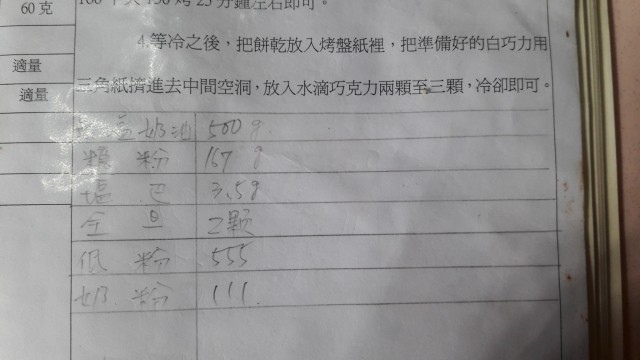 60克
150烤25分鐘左右即可。
4.等冷之後，把餅乾放入烤盤紙裡，把準備好的白巧力用
適量
三角紙擠進去中間空洞，放入水滴巧克力兩顆至三顆，冷卻即可。
適量
奶油 500g
糖粉 167g
塩巴 3.5g
全旦 2顆
低粉 555
奶粉 111.